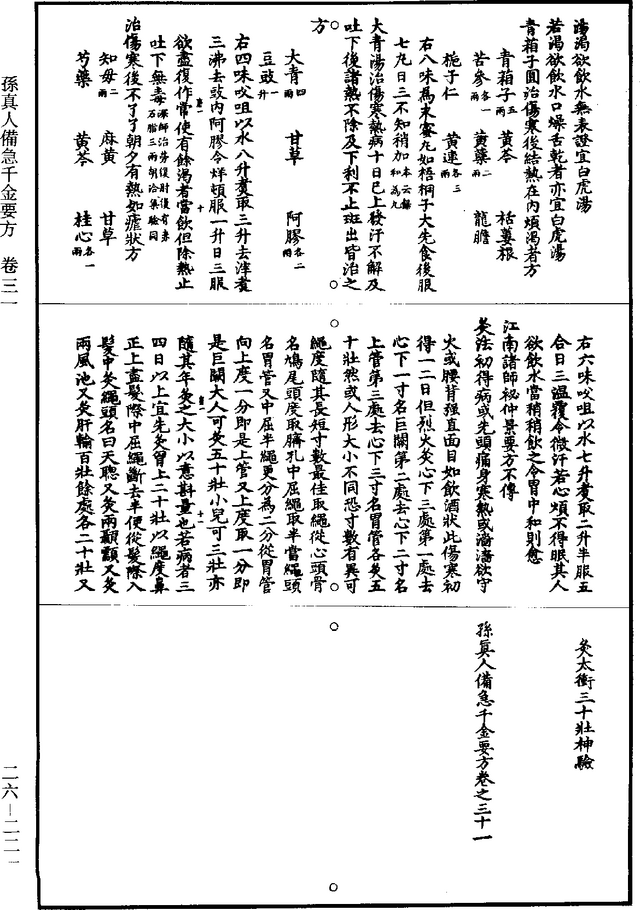 湯渴欲飲水無表證宜白虎湯
若渴欲飲水口燥舌乾者亦宜白虎湯
青葙子圓治傷寒後結熱在內煩渴者方
青葙子五兩 黃芩 栝蔞根
苦參各一兩 黃蘗二兩 龍膽
梔子仁 黃連各三兩
右八味為末蜜丸如梧桐子大先食後服
七丸日三不知稍加本云餳和為丸
大青湯治傷寒熱病十日已上發汗不解及
吐下後諸熱不除及下利不止斑出皆治之
方
大青四兩 甘草 阿膠各二兩
豆豉一升
右四味㕮咀以水八升煮取三升去滓煮
三沸去豉內阿膠令烊頓服一升日三服
欲盡復作常使有餘渴者當飲但除熱止
吐下無毒深師治勞復肘後有赤石脂三兩胡洽集驗同
治傷寒後不了了朝夕有熱如瘧狀方
知母二兩 麻黃 甘草
芍藥 黃芩 桂心各一兩
右六味㕮咀以水七升煮取二升半服五
合日三溫覆令微汗若心煩不得眠其人
欲飲水當稍稍飲之令胃中和則愈
江南諸師秘仲景要方不傳
灸法初得病或先頭痛身寒熱或濇濇欲守
火或腰背強直面目如飲酒狀此傷寒初
得一二日但烈火灸心下三處第一處去
心下一寸名巨闕第二處去心下二寸名
上管第三處去心下三寸名胃管各灸五
十壯然或人形大小不同恐寸數有異可
繩度隨其長短寸數最佳取繩從心頭骨
名鳩尾頭度取臍孔中屈繩取半當繩頭
名胃管又中屈半繩更分為二分從胃管
向上度一分即是上管又上度取一分即
是巨闕大人可灸五十壯小兒可三壯亦
隨其年灸之大小以意斟量也若病者三
四日以上宜先灸胷上二十壯以繩度鼻
正上盡髮際中屈繩斷去半便從髮際入
髮中灸繩頭名曰天聰又灸兩顳顬又灸
兩風池又灸肝輸百壯餘處各二十壯又
灸太衝三十壯神驗
孫真人備急千金要方卷之三十一
孫真人備急千金要方 卷三一
二六—二二一